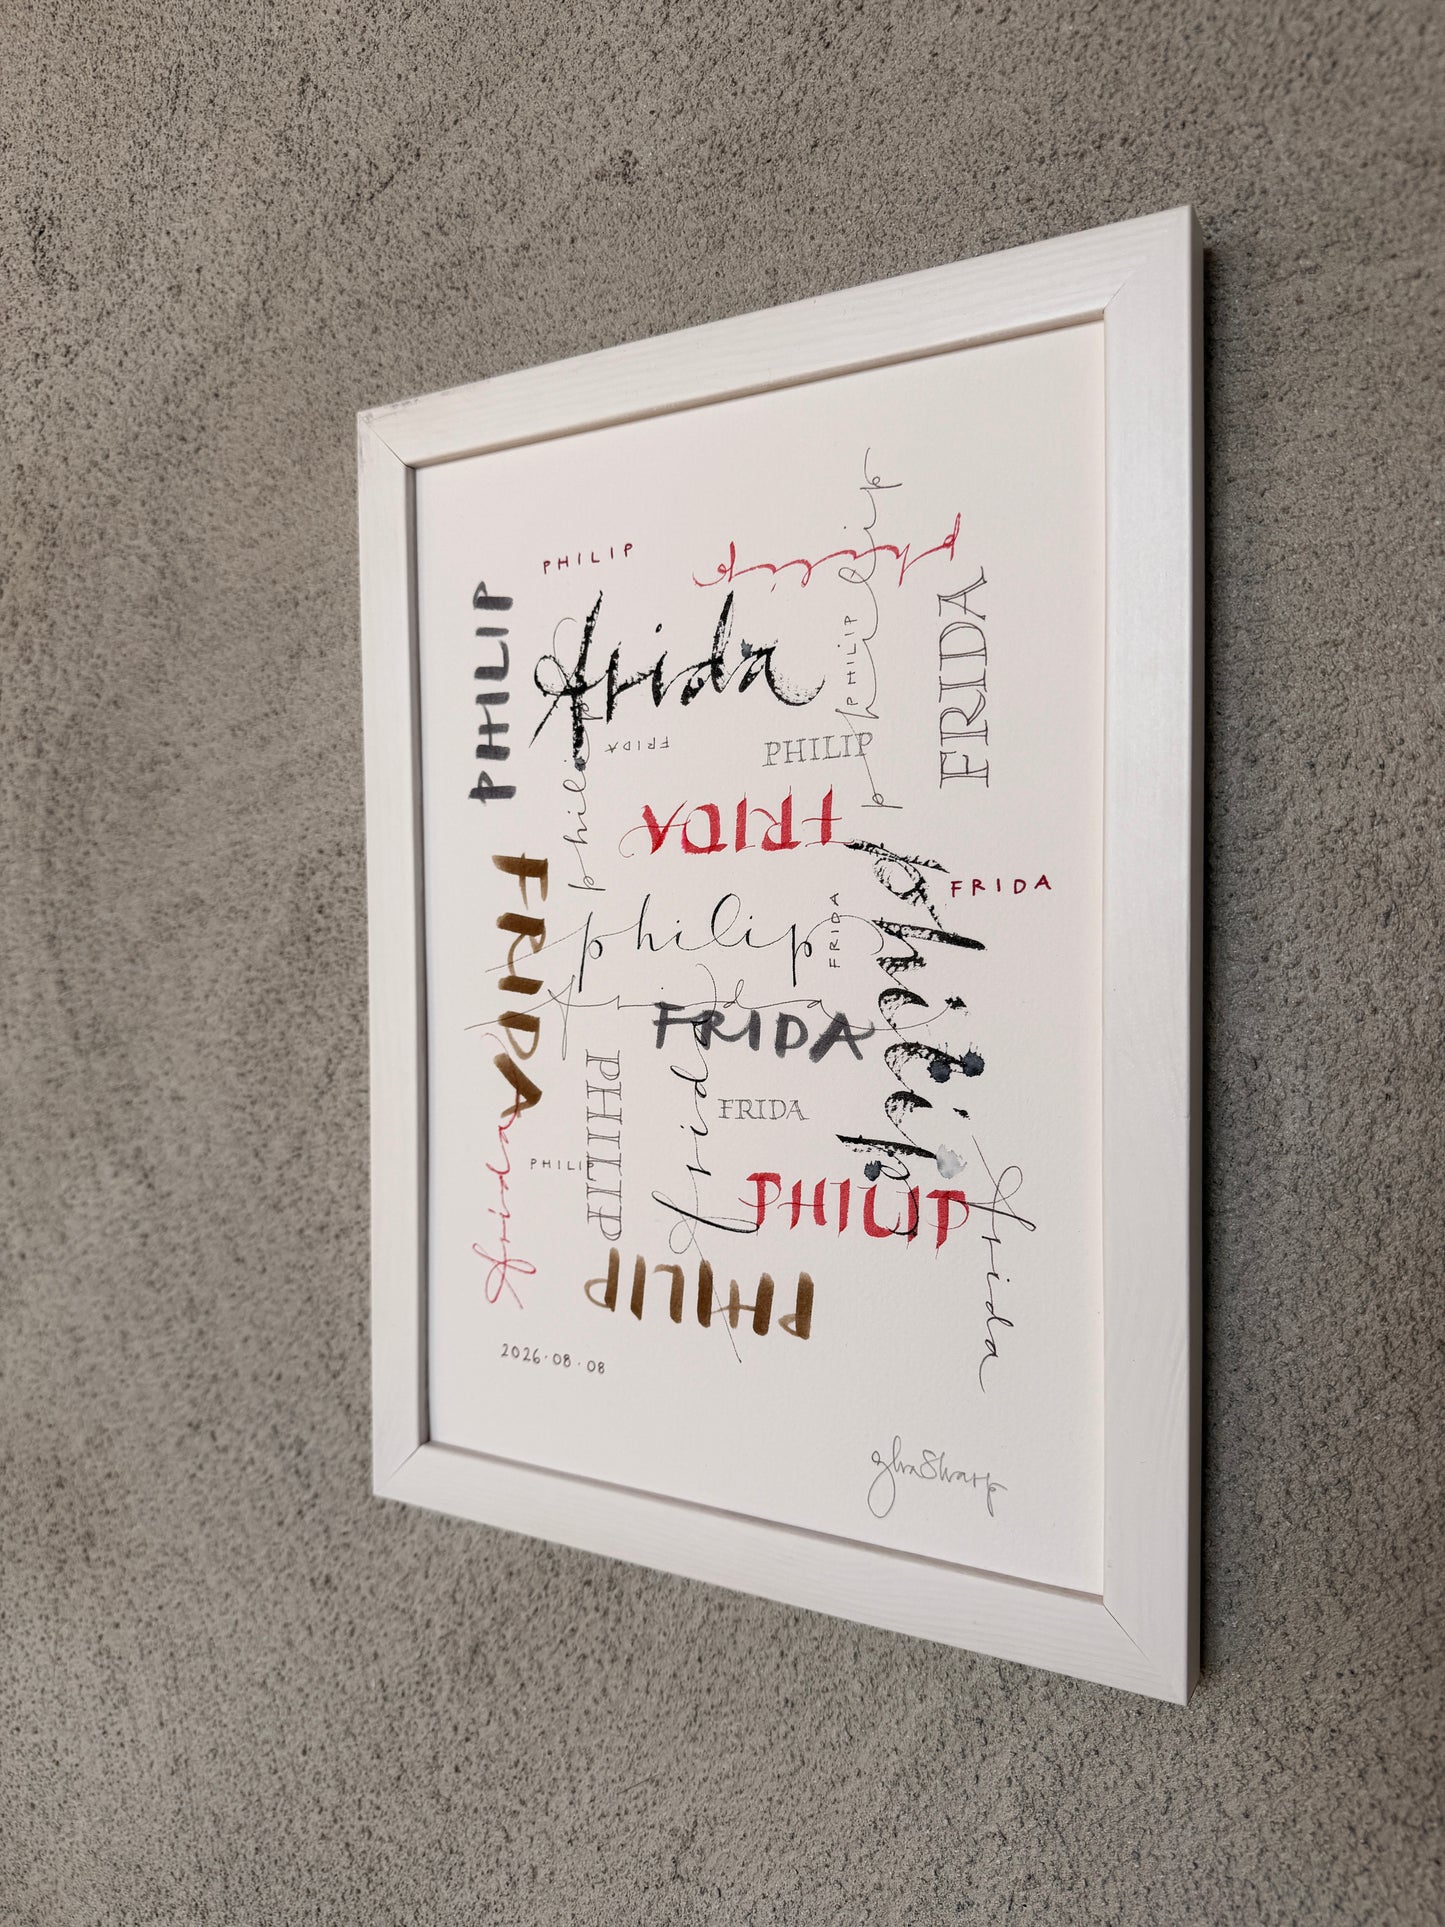 PHILIP
philip
philip
PHILIP
frida
PHILIP
FRIDA
FRIDA
PHILIP
philip
FRIDA
FRIDA
FRIDA
philip
FRIDA
philip
frida
FRIDA
PHILIP
frida
FRIDA
PHILIP
frida
PHILIP
frida
PHILIP
2026·08·08